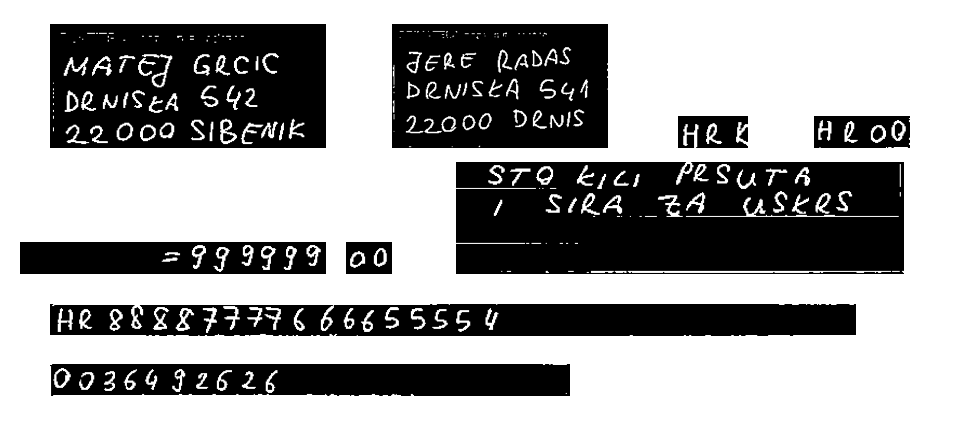 MATEJ GRCIC
DRNISKA 542
22000 SIBENIK
JERE RADAS
DRNISKA 541
22000 DRNIS
HRK
HR00
STO KILI PRSUTA
I SIRA ZA USKRS
=999999 00
HR88887777666655554
0036492626